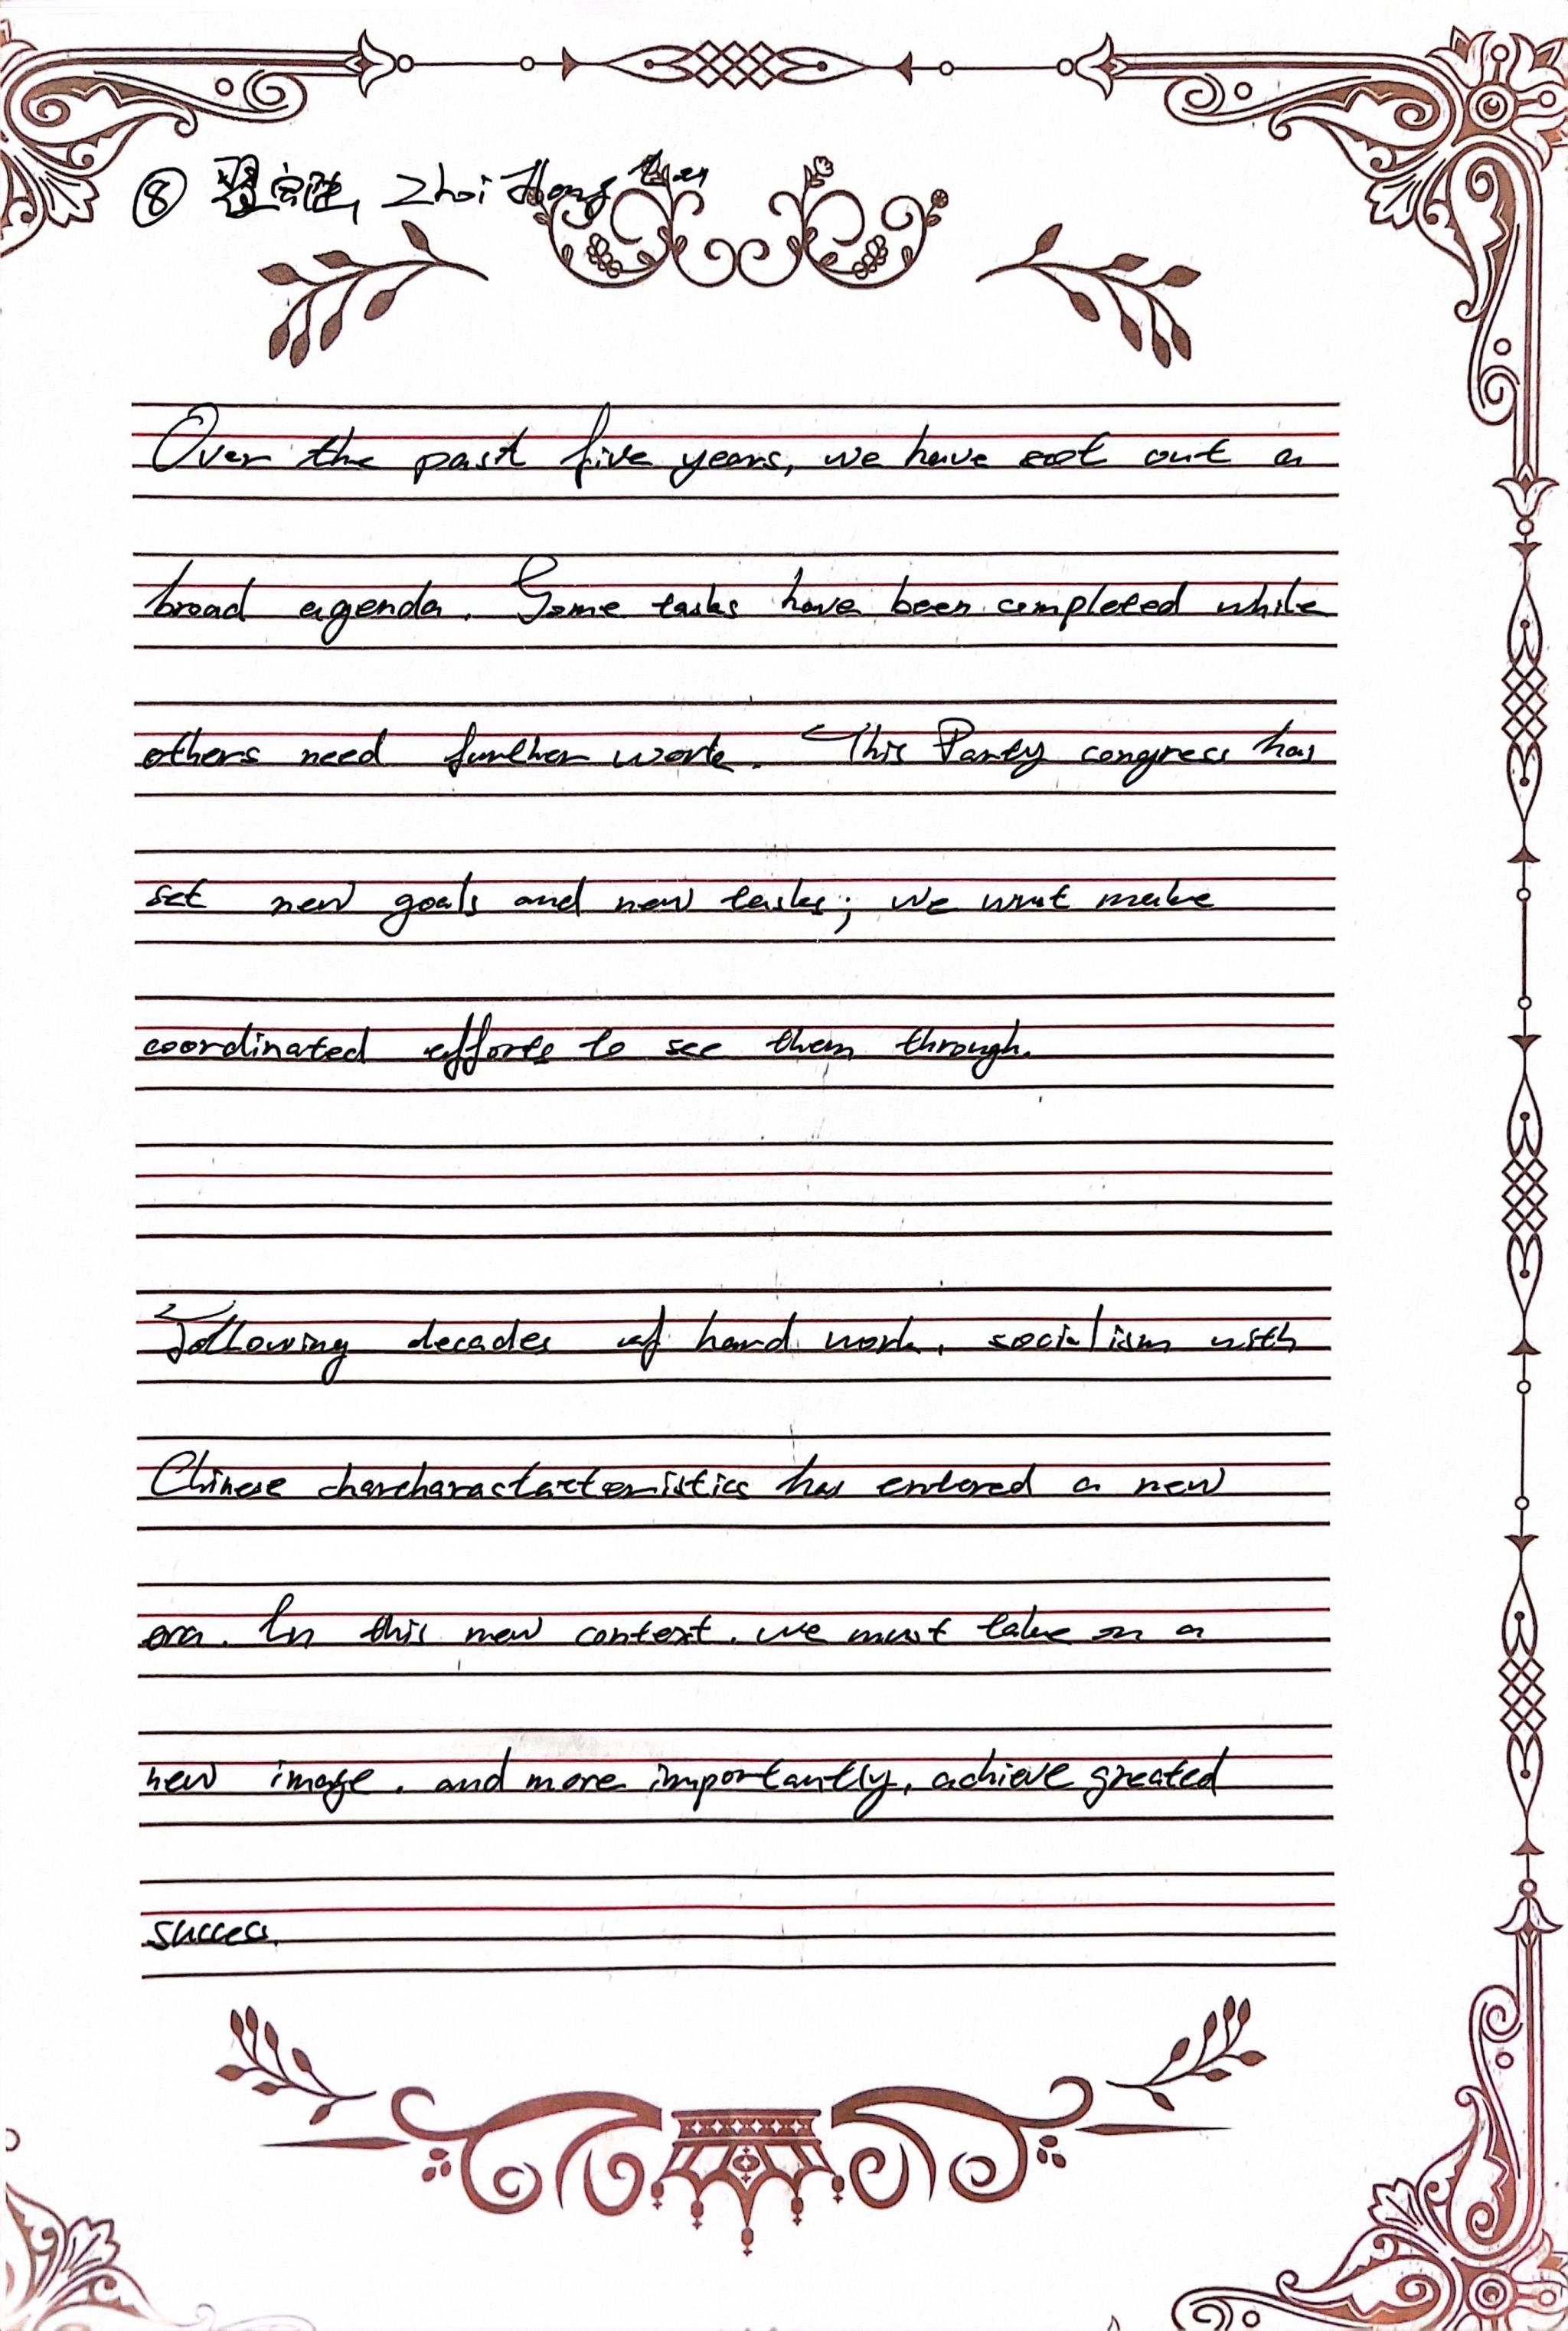 ⑧ Zhai Hong
Over the past five years, we have set out a
broad agenda. Some tasks have been completed while
others need further work. This Party congress has
set new goals and new tasks; we must make
coordinated efforts to see them through.
Following decades of hard work, socialism with
Chinese charcharactacteristics has entered a new
era. In this new context, we must take on a
new image, and more importantly, achieve greated
success.